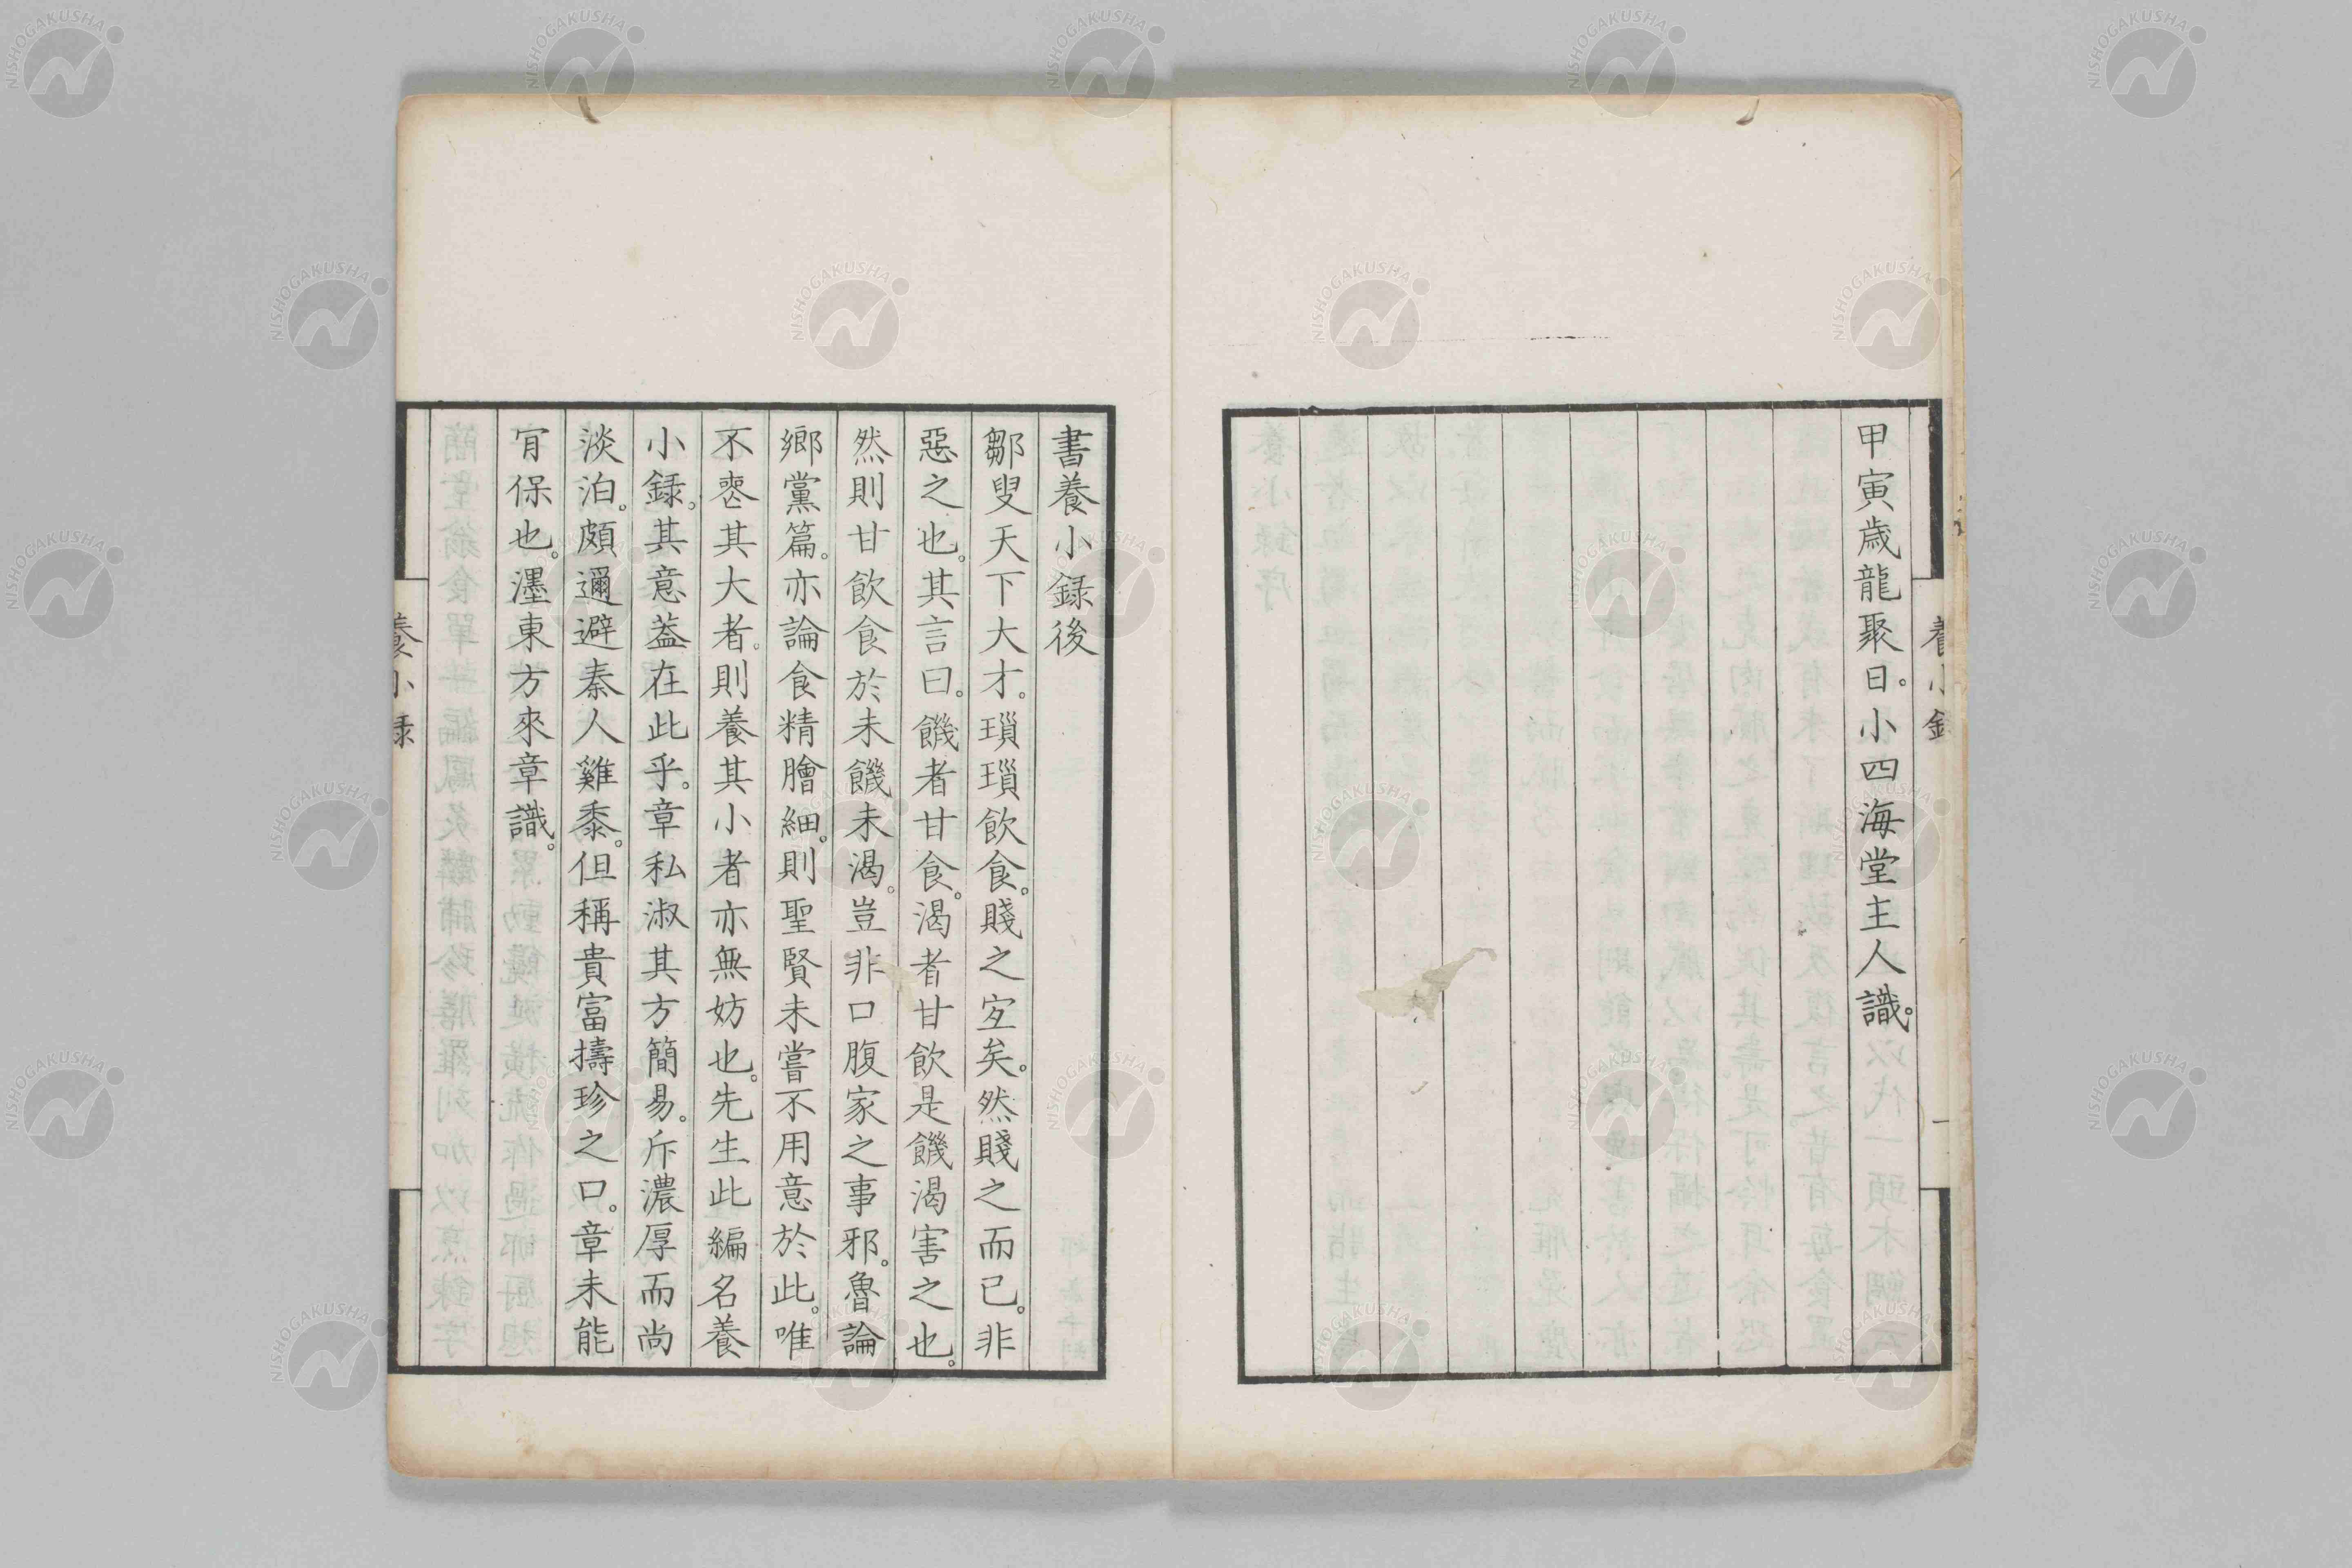 甲寅歳龍聚日。小四海堂主人識。
書養小録後
鄒叟天下大才。瑣瑣飲食。賤之宐矣。然賤之而已。非
惡之也。其言曰。饑者甘食。渴者甘飲是饑渴害之也。
然則甘飲食於未饑未渴。豈非口腹家之事邪。魯論
鄉黨篇。亦論食精膾細。則聖賢未嘗不用意於此。唯
不䘮其大者。則養其小者亦無妨也。先生此編名養
小録。其意葢在此乎。章私淑其方簡易。斥濃厚而尚
淡泊。頗邇避秦人雞黍。但稱貴富擣珍之口。章未能
肎保也。濹東方來章識。
養小録